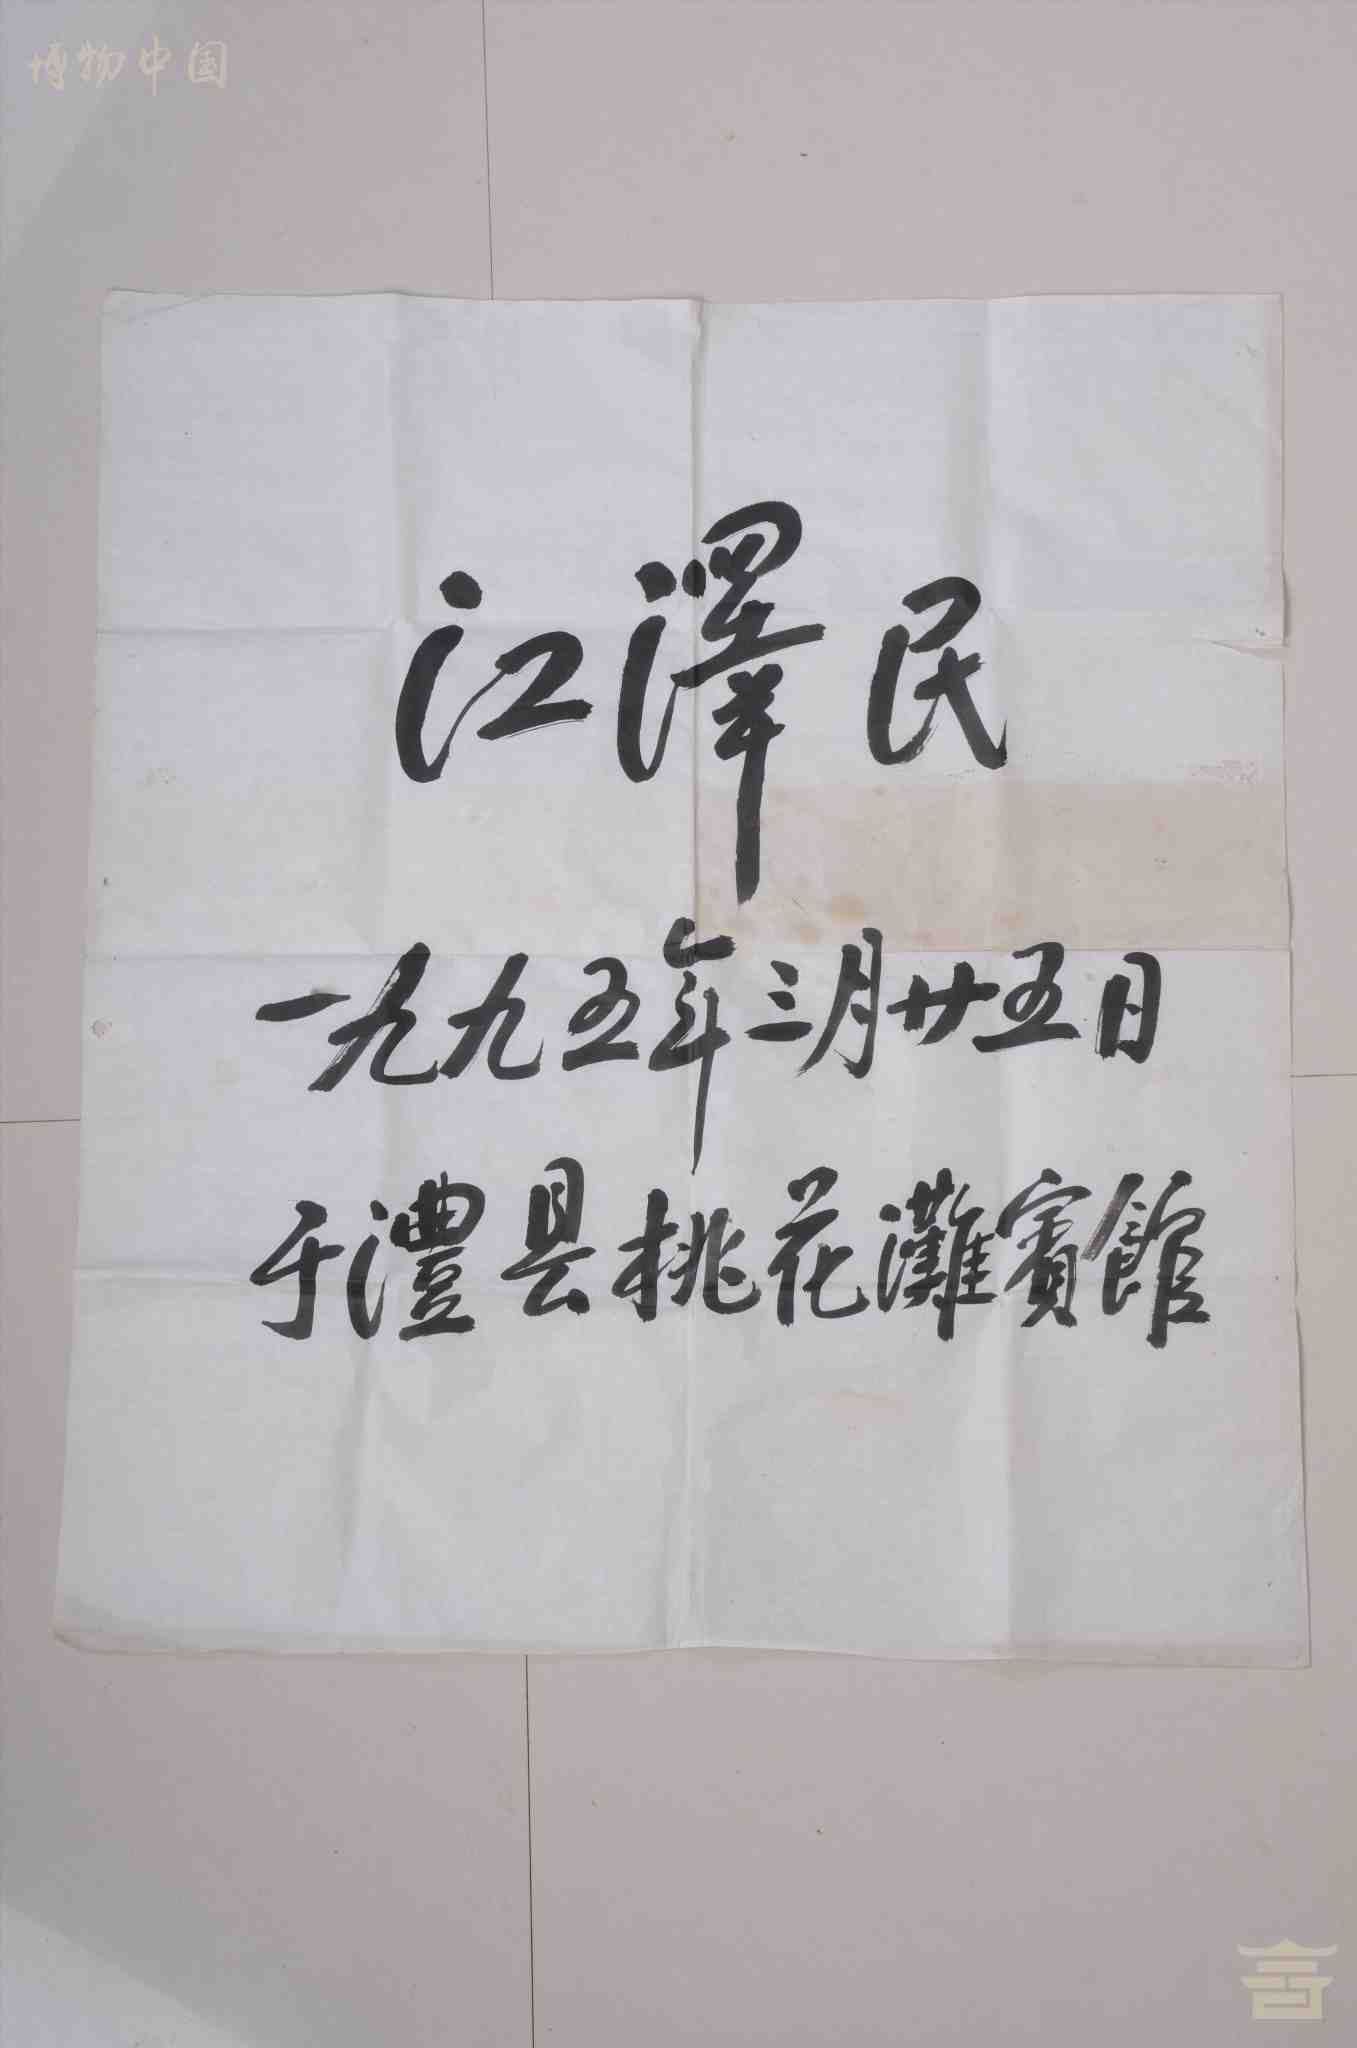 博物中国
江澤民
一九九五年三月廿五日
于澧县桃花灘賓館